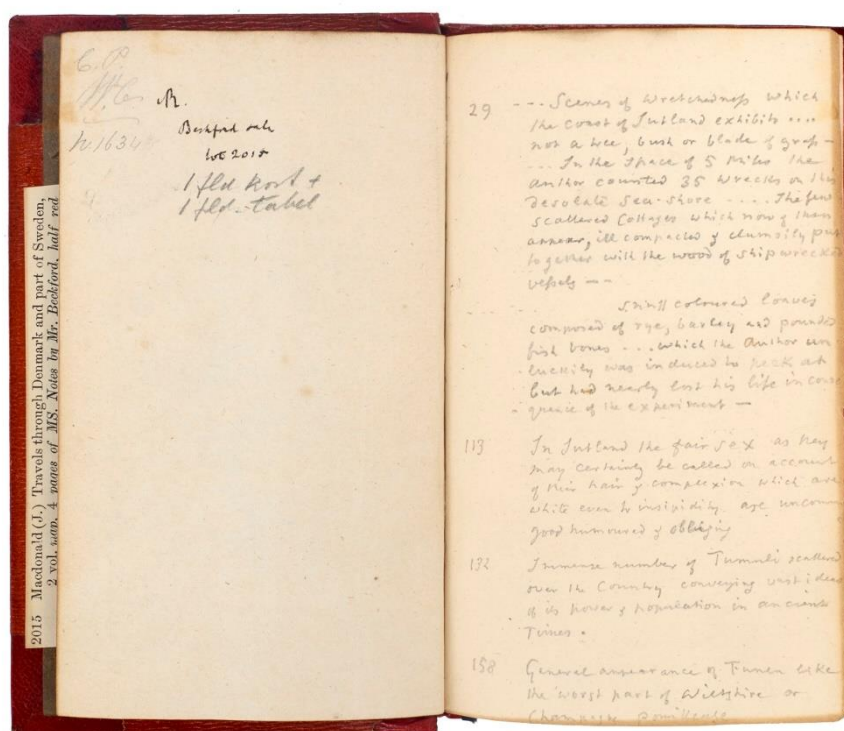 2015 Macdonald (J.) Travels through Denmark and part of Sweden,
2 vol. map. 4 pages of MS. Notes by Mr. Beckford, half red
C.P.
R.
h.1634
Beckford sale
lot 2015
1 fld kort +
1 fld. tabel
29 --- Scenes of wretchedness which
the coast of Jutland exhibits ....
not a tree, bush or blade of grass —
.... In the space of 5 miles the
author counted 35 wrecks on this
desolate sea-shore ..... The few
scattered Cottages which now & then
appear, ill compacted & clumsily put
together with the wood of shipwrecked
vessels — —
coloured loaves
composed of rye, barley and pounded
fish bones - ... which the Author un
luckily was induced to peck at
but had nearly lost his life in conse
quence of the experiment —
113 In Jutland the fair sex as they
may certainly be called on account
of their hair & complexion which are
white even to insipidity are uncom
good humoured & obliging
132 Immense number of Tumuli scattered
over the Country conveying vast ideas
of its power & population in ancient
Times.
158 General appearance of Funen like
the worst part of Wiltshire or
Champagne